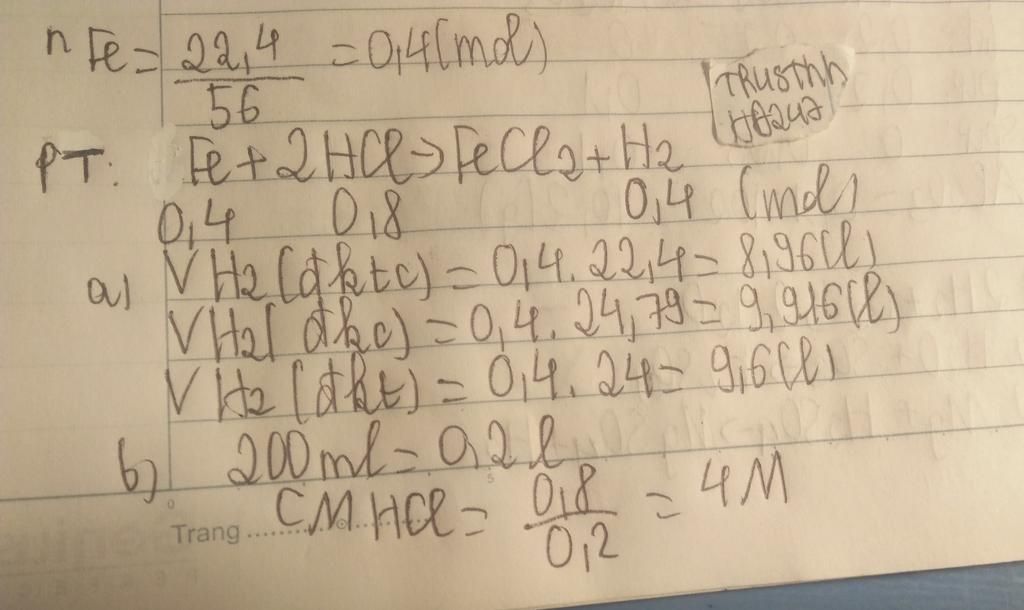 nFe = 22,4 / 56 = 0,4(mol)
TRUSTnn
HB247
PT: Fe + 2HCl → FeCl2 + H2
0,4 0,8 0,4 (mol)
a) VH2 (đktc) = 0,4. 22,4 = 8,96(l)
VH2( đkc) = 0,4. 24,79 = 9,916(l)
VH2 (đkt) = 0,4. 24 = 9,6(l)
b) 200ml = 0,2l
CM HCl = 0,8 / 0,2 = 4M
Trang